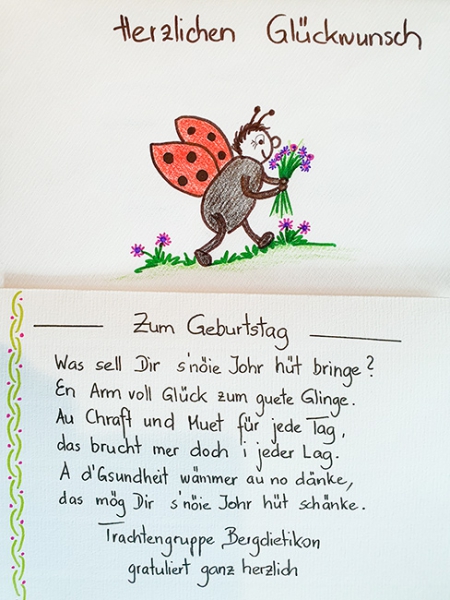 Herzlichen Glückwunsch
Zum Geburtstag
Was sell Dir s'nöie Johr hüt bringe?
En Arm voll Glück zum guete Glinge.
Au Chraft und Muet für jede Tag,
das brucht mer doch i jeder Lag.
A d'Gsundheit wämmer au no dänke,
das mög Dir s'nöie Johr hüt schänke.
Trachtengruppe Bergdietikon
gratuliert ganz herzlich